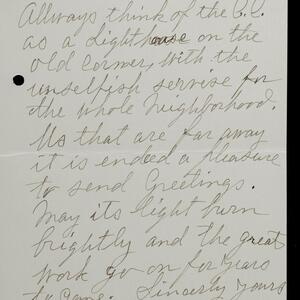 Allways think of the C.C.
as a Lighthouse on the
old corner, with the
unselfish servise for
the whole Neighborhood.
Us that are far away
it is endeed a pleasure
to send Greetings.
May its light burn
brightly and the great
work go on for years
to come. Sincerly yours